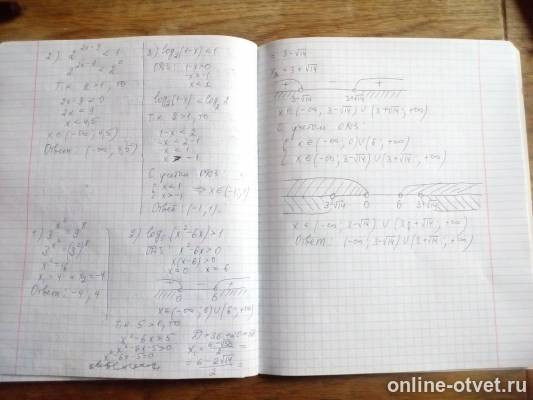 2) 2^(2x-3) < 1
2^(2x-3) < 2^0
т.к. 2 > 1, то
2x-3 < 0
x < 1,5
x ∈ (-∞; 1,5)
Ответ: (-∞; 1,5)
3) log₂(1-x) < 1
ОДЗ: 1-x > 0
-x > -1
x < 1
log₂(1-x) < log₂ 2
т.к. 2 > 1, то
1-x < 2
-x < 2-1
-x < 1
x > -1
С учётом ОДЗ:
{ x < 1
{ x > -1 ⇒ x ∈ (-1; 1)
Ответ: (-1; 1)
x² = 16
x₁ = 4 x₂ = -4
Ответ: -4; 4
2) log₅(x²-6x) > 1
ОДЗ: x²-6x > 0
x(x-6) > 0
x=0 x=6
+ - +
0 6
x ∈ (-∞; 0) ∪ (6; +∞)
т.к. 5 > 1, то
x²-6x > 5
x²-6x-5 > 0
= 3-√14
x₂ = 3+√14
+ - +
3-√14 3+√14
x ∈ (-∞; 3-√14) ∪ (3+√14; +∞)
С учётом ОДЗ:
{ x ∈ (-∞; 0) ∪ (6; +∞)
{ x ∈ (-∞; 3-√14) ∪ (3+√14; +∞)
3-√14 0 6 3+√14
x ∈ (-∞; 3-√14) ∪ (3+√14; +∞)
Ответ: (-∞; 3-√14) ∪ (3+√14; +∞)
online-otvet.ru